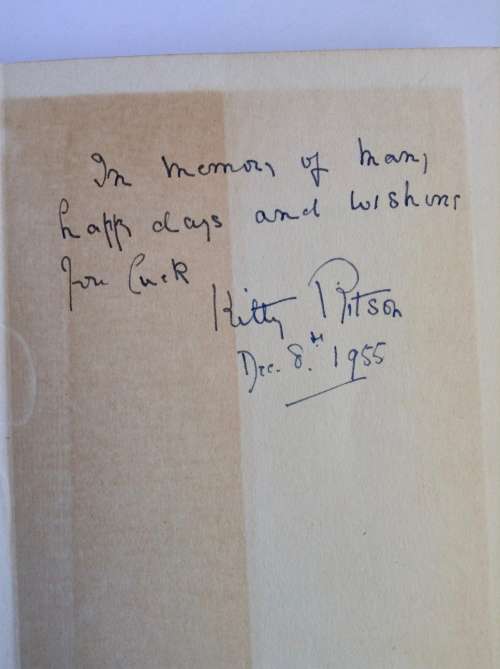 In memory of many
happy days and wishing
you luck
Kitty Ritson
Dec. 8th 1955